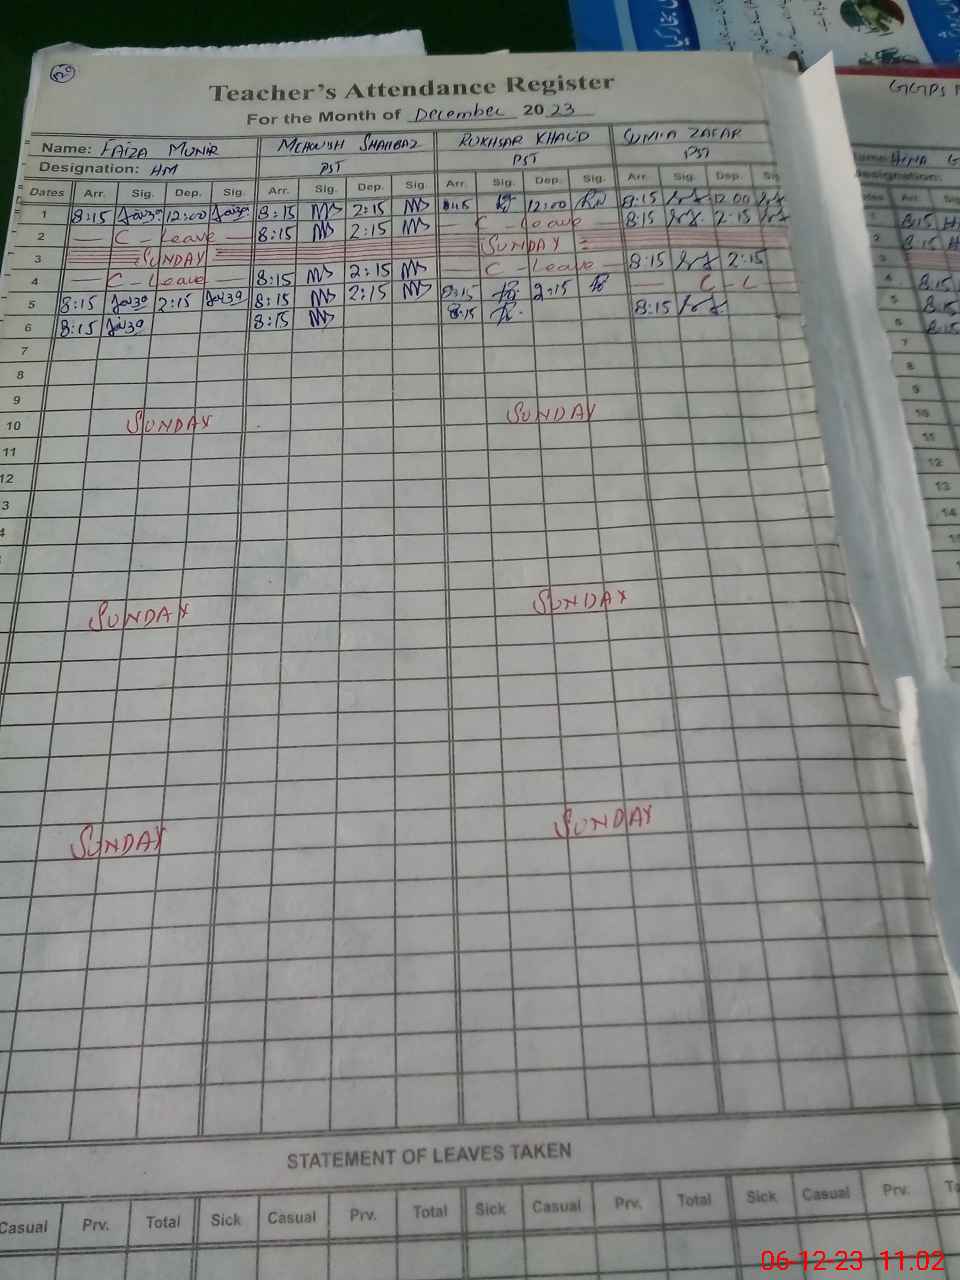 Teacher's Attendance Register
For the Month of December 2023
Name: FAIZA MUNIR MEHWISH SHAHBAZ RUKHSAR KHALID SUMIA ZAFAR
Designation: HM PST PST PST
Dates Arr. Sig. Dep. Sig. Arr. Sig. Dep. Sig. Arr. Sig. Dep. Sig. Arr. Sig. Dep. Sig
1 8:15 12:00 8:15 2:15 8:15 12:00 8:15 12:00
2 — C - Leave — 8:15 2:15 — C - Leave — 8:15 2:15
3 SUNDAY SUNDAY
4 — C - Leave — 8:15 2:15 — C - Leave — 8:15 2:15
5 8:15 2:15 8:15 2:15 8:15 2:15 — C - L
6 8:15 8:15 8:15 8:15
7
8
9
10 SUNDAY SUNDAY
11
12
3
4
SUNDAY SUNDAY
SUNDAY SUNDAY
STATEMENT OF LEAVES TAKEN
Casual Prv. Total Sick Casual Prv. Total Sick Casual Prv. Total Sick Casual Prv.
GGPS
HINA
Designation:
Arr.
1 8:15
2 8:15
3
4 8:15
5 8:15
6 8:15
7
8
9
10
11
12
13
14
06-12-23 11.02